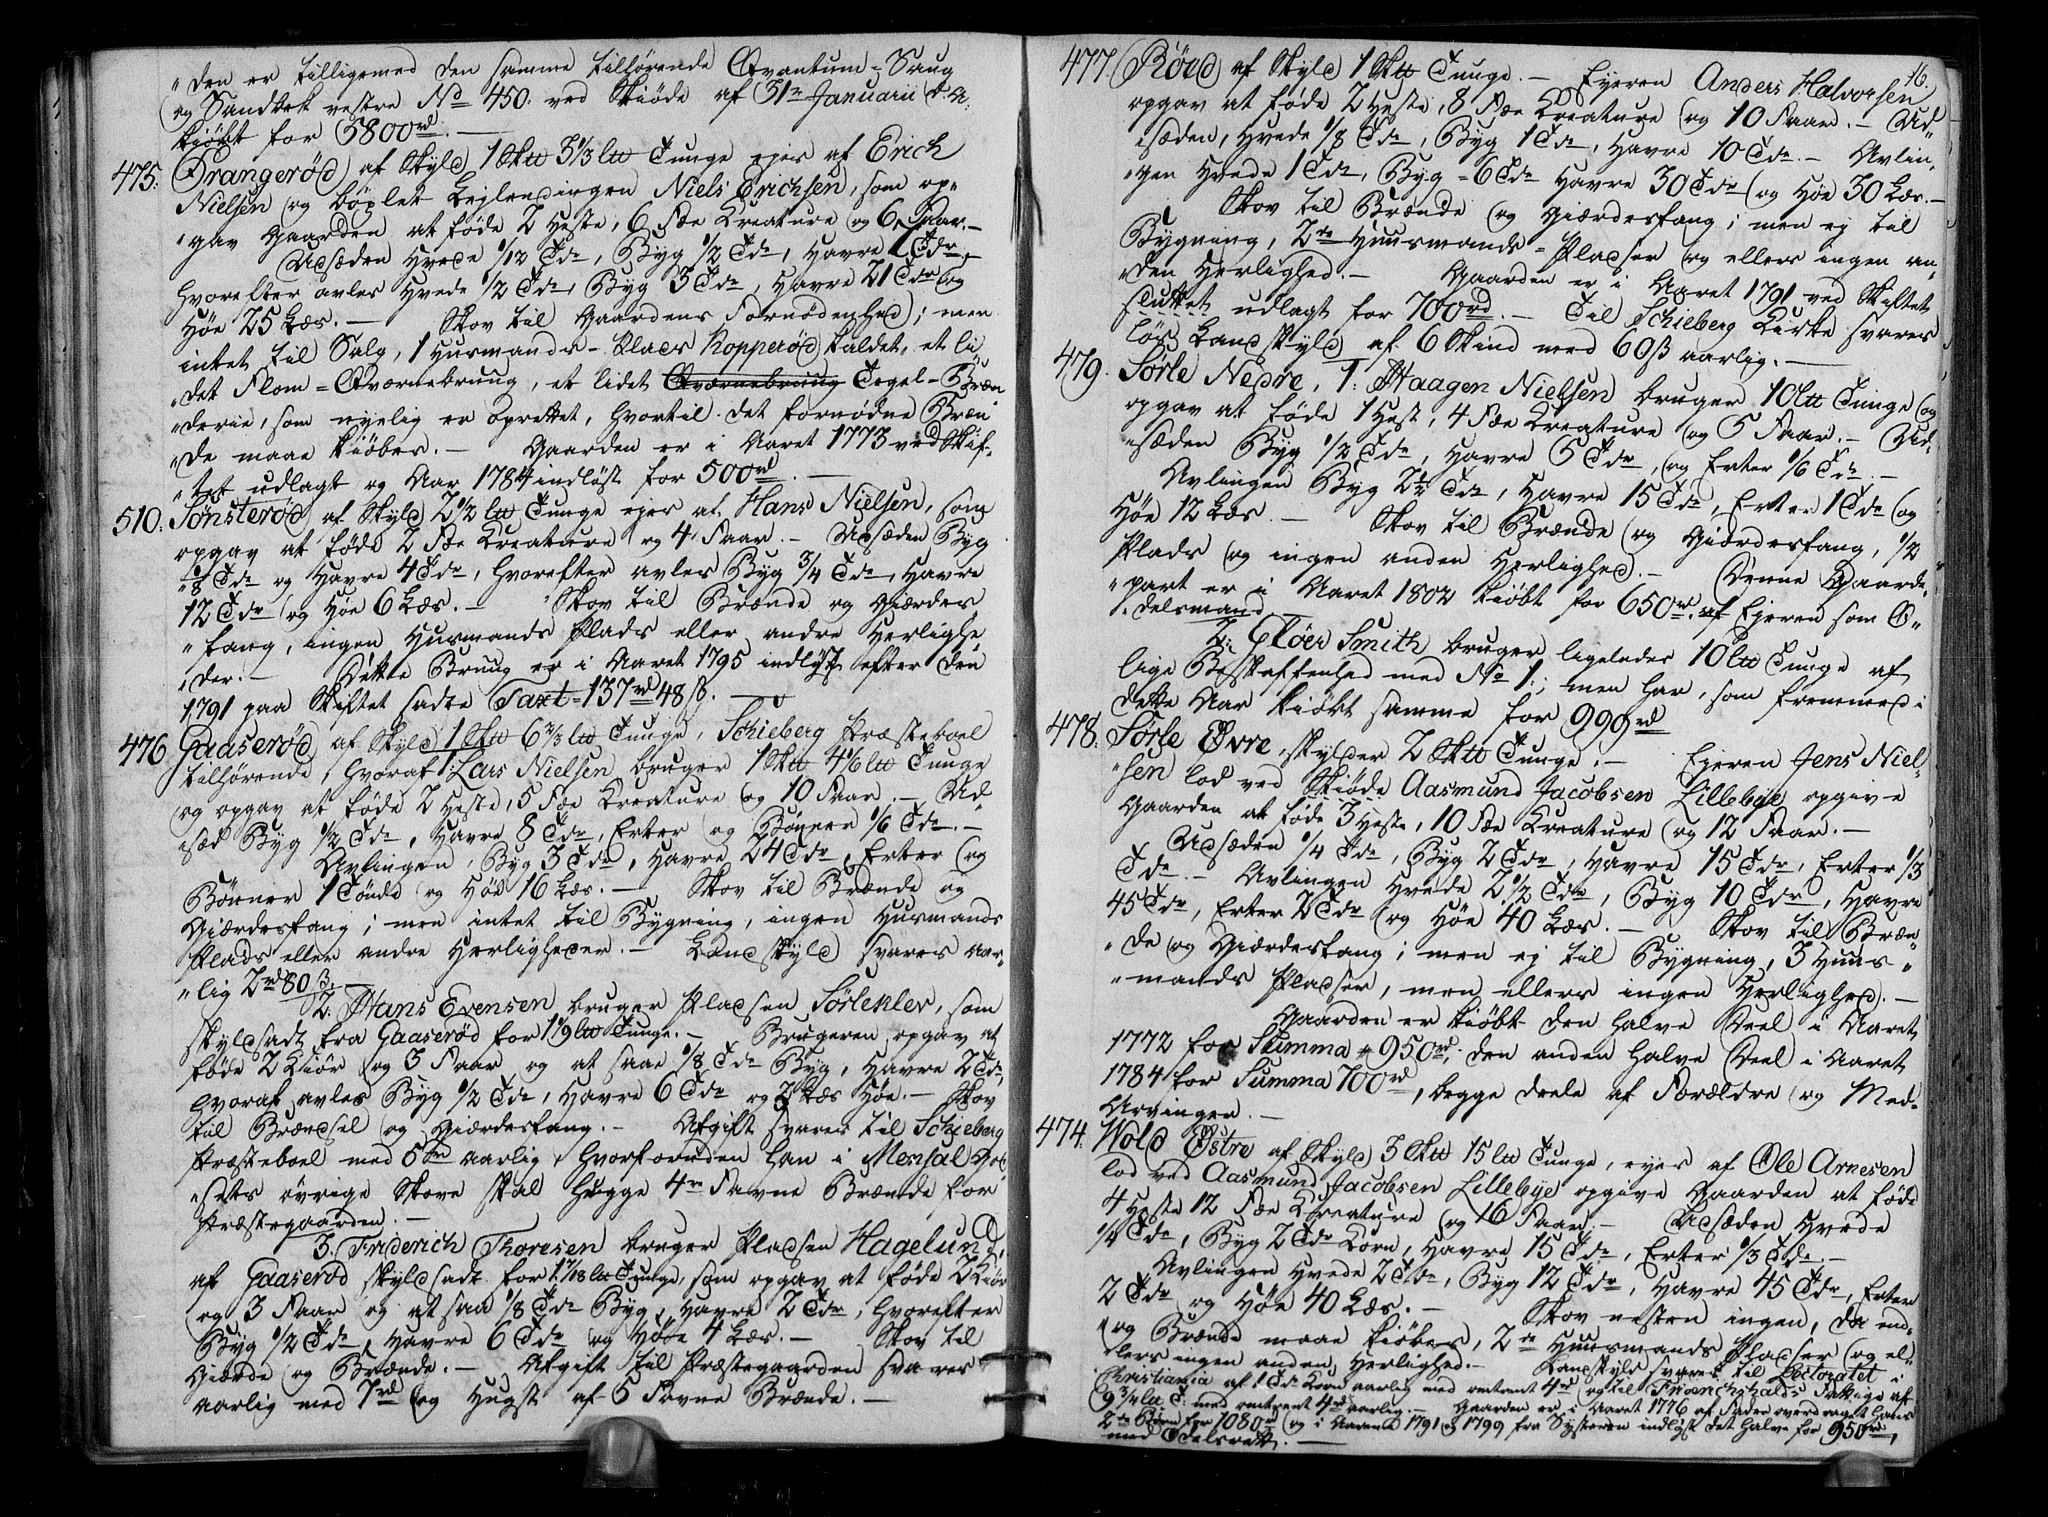 "den er tilligemed den samme tilhørende Qvantum-Saug
og Sandbek vestre No 450: ved Skiøde af 31te Januarii d: A:
kiøbt for 5800rd. —
475: Prangerød af Skyld 1 Sktt 3 1/3 ltt Tunge ejes af Erich
Nielsen og bøxlet Lejlendingen Niels Erichsen, som op"
"gav Gaarden at føde 2 Heste, 6 Fæe Kreature og 6 Faar. —
Udsæden Hvede 1/12 Tde, Byg 1/2 Tde, Havre 7 Tdr,
hvorefter avles Hvede 1/2 Tde, Byg 3 Tde, Havre 21 Tdr og
Høe 25 Læs. — Skov til Gaardens Fornødenhed; men
intet til Salg, 1 Husmands-Plads Kopperød kaldet, et li
"det Flom-Qværnebrug, et lidet Qværnebrug Tegel-Bræn
"derie, som nyelig er oprettet, hvortil det fornødne Bræn"
"de maae kiøbes. — Gaarden er i Aaret 1773 ved Skif"
"tet udlagt og Aar 1784 indløst for 500rd. —
510: Sønsterød af Skyld 2 1/2 ltt Tunge ejes af Hans Nielsen, som
opgav at føde 2 Fæe Kreature og 4 Faar. — Udsæden Byg
1/8 Tde og Havre 4 Tde, hvorefter avles Byg 3/4 Tde, Havre
12 Tdr og Høe 6 Læs. — Skov til Brænde og Giærdes
"fang, ingen Husmands Plads eller andre Herlighe
"der. — Dette Brug er i Aaret 1795 indløst efter den
1791 paa Skiftet sadte Taxt-137rd 48 ß. —
476 Gaaserød af Skyld 1 Sktt 6 2/3 ltt Tunge, Schieberg Præsteboel
tilhørende, hvoraf 1: Lars Nielsen bruger 1 Sktt 4 1/6 ltt Tunge
og opgav at føde 2 Heste, 5 Fæe Kreature og 10 Faar. — Ud"
"sæd Byg 1/2 Tde, Havre 8 Tdr, Erter og Bønner 1/6 Tde. —
Avlingen, Byg 3 Tde, Havre 24 Tdr, Erter og
Bønner 1 Tønde og Høe 16 Læs. — Skov til Brænde og
Giærdesfang; men intet til Bygning, ingen Husmands
Plads eller andre Herligheder. — Landskyld svares aar"
"lig 2rd 80 ß. —
2. Hans Evensen bruger Pladsen Sørlekler, som
skyldsadt fra Gaaserød for 1 1/9 ltt Tunge. — Brugeren opgav at
føde 2 Kiør og 3 Faar og at saae 1/8 Tde Byg, Havre 2 Tde,
hvoraf avles Byg 1/2 Tde, Havre 6 Tdr og 2 Læs Høe. — Skov
til Brændsel og Giærdesfang. — Afgift svares til Schieberg
Præsteboel med 5 rd aarlig, hvorforuden han i Mensal God
"sets øvrige Skove skal hugge 4re Favne Brænde for
Præstegaarden. —
3. Friderich Thoresen bruger Pladsen Hagelund,
af Gaaserød skyldsadt for 1 7/18 ltt Tunge, som opgav at føde 2 Kiør
og 3 Faar og at saa 1/8 Tde Byg, Havre 2 Tdr, hvorefter
Byg 1/2 Tde, Havre 6 Tdr og Høe 4 Læs. — Skov til
Giærde og Brænde. — Afgift til Præstegaarden svares
aarlig med 7rd og Hugst af 5 Favne Brænde. —
16.
477. Rørd af Skyld 1 Sktt Tunge. — Ejeren Anders Halvorsen
opgav at føde 2 Heste, 8 Fæe Kreature og 10 Faar. — Ud"
"sæden, Hvede 1/8 Tde, Byg 1 Tde, Havre 10 Tde. — Avlin"
"gen Hvede 1 Tde, Byg - 6 Tde Havre 30 Tdr og Høe 30 Læs. —
Skov til Brænde og Giærdesfang; men ej til
Bygning, 2de Huusmands-Pladser og ellers ingen an"
"den Herlighed. — Gaarden er i Aaret 1791 ved Skiftet
sluttet udlagt for 700rd. — Til Schieberg Kirke svares
løs Landskyld af 6 Skind med 60 ß aarlig. —
479. Sørle Nedre, 1: Haagen Nielsen bruger 10 ltt Tunge og
opgav at føde 1 Hest, 4 Fæe Kreature og 5 Faar. — Ud"
"sæden Byg 1/2 Tde, Havre 5 Tdr, og Erter 1/6 Tde. —
Avlingen Byg 2 1/2 Tde, Havre 15 Tde, Erter 1 Tde og
Høe 12 Læs. — Skov til Brænde og Giærdesfang, 1/2
Plads og ingen anden Herlighed. — Denne Gaarde"
"part er i Aaret 1802 kiøbt for 650rd. af Ejeren som O"
"delsmand.
2: Eløer Smith bruger ligeledes 10 ltt Tunge af
lige Beskaffenhed med No 1:; men har, som fremmed i
dette Aar kiøbt samme for 999rd
478: Sørle Øvre, skylder 2 Sktt Tunge. — Ejeren Jens Niel"
"sen lod ved Skiøde Aasmund Jacobsen Lillebye opgive
Gaarden at føde 3 Heste, 10 Fæe Kreature og 12 Faar. —
Udsæden 1/4 Tde, Byg 2 Tde, Havre 15 Tdr, Erter 1/3
Tde. — Avlingen Hvede 2 1/2 Tde, Byg 10 Tdr, Havre
45 Tdr, Erter 2 Tdr og Høe 40 Læs. — Skov til Bræn"
"de og Giærdesfang; men ej til Bygning, 3 Huus"
"mands Pladser, men ellers ingen Herlighed. —
Gaarden er kiøbt den halve Deel i Aaret
1772 for Summa 950rd, den anden halve Deel i Aaret
1784 for Summa 700rd, begge deele af Forældre og Med"
Arvingen. —
474. Wold Østre af Skyld 3 Sktt 15 ltt Tunge, ejes af Ole Arnesen
lod ved Aasmund Jacobsen Lillebye opgive Gaarden at føde
4 Heste 12 Fæe Kreature og 16 Faar. — Udsæden Hvede
1/4 Tde, Byg 2 Tdr Korn, Havre 15 Tde, Erter 1/3 Tde. —
Avlingen Hvede 2 Tde, Byg 12 Tdr, Havre 45 Tdr, Erter
2 Tdr og Høe 40 Læs. — Skov nesten ingen, da end"
"og Brænde maae kiøbes, 2de Huusmands Pladser og el"
"lers ingen anden Herlighed. — Landskyld svares til Lectoratet i
Christiania af 1 Tde Korn aarlig med omtrent 4rd og til Friderichshalds Fattige af
9 3/4 ltt T: med omtrent 4rd aarlig. — Gaarden er i Aaret 1776 af Fadren overdraget hans
2de Børn for 1080rd og i Aarene 1791 og 1799 for Systeren indløst det halve for 950rd,
med Odelsrett. —